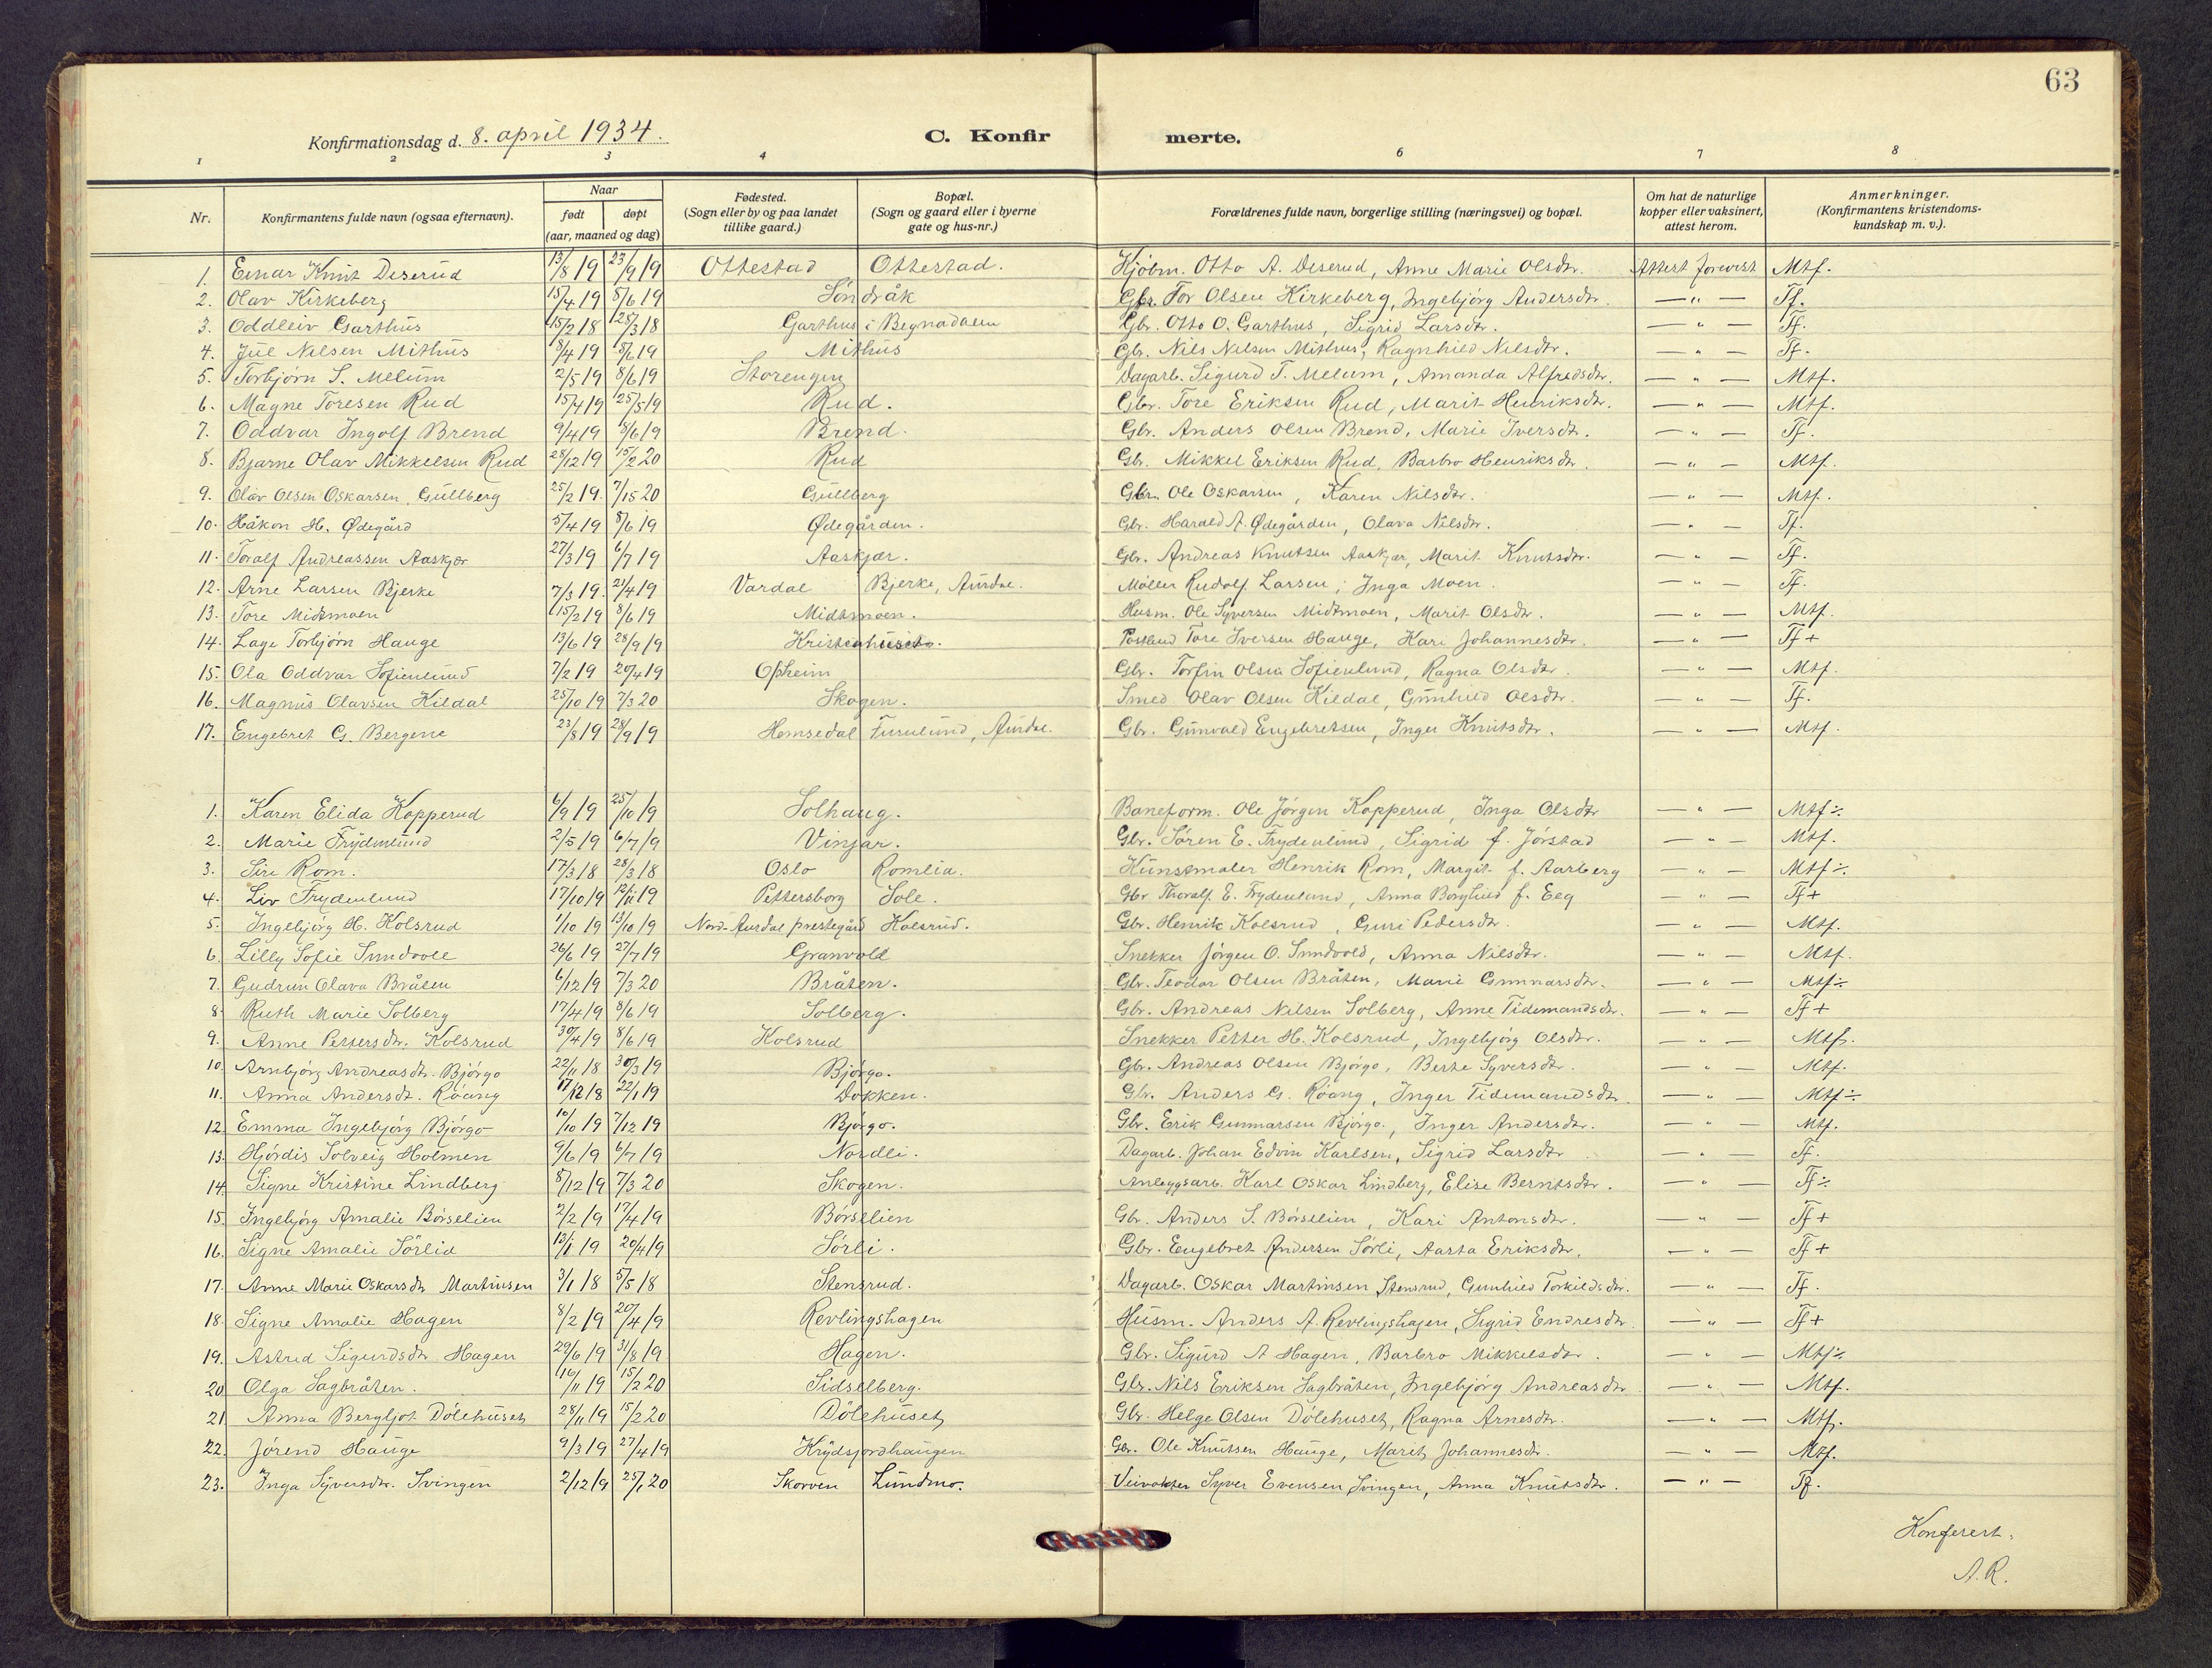 63
Konfirmationsdag d. 8. april 1934.
C. Konfirmerte.
1 2 3 4 6 7 8
Nr. Konfirmantens fulde navn (ogsaa efternavn). Naar født døpt (aar, maaned og dag) Fødested. (Sogn eller by og paa landet tillike gaard.) Bopæl. (Sogn og gaard eller i byerne gate og hus-nr.) Forældrenes fulde navn, borgerlige stilling (næringsvei) og bopæl. Om hat de naturlige kopper eller vaksinert, attest herom. Anmerkninger. (Konfirmantens kristendoms- kundskap m. v.).
1. Einar Knut Deserud 13/8 19 23/9 19 Ottestad Ottestad. Kjöbm. Otto A. Deserud, Anne Marie Olsdtr. Attest forevist Mtf.
2. Olav Kirkeberg 15/4 19 8/6 19 Söndråk Gbr. Tor Olsen Kirkeberg, Ingebjörg Andersdtr. — " — Tf.
3. Oddleiv Garthus 15/2 18 28/3 18 Garthus i Begnadalen Gbr. Otto O. Garthus, Sigrid Larsdtr. — " — Tf.
4. Jul Nilsen Mithus 8/4 19 8/6 19 Mithus Gbr. Nils Nilsen Mithus, Ragnhild Nilsdtr. — " — Tf.
5. Torbjörn S. Melum 2/5 19 8/6 19 Storengen Dagarb. Sigurd T. Melum, Amanda Alfredsdtr. — " — Mtf.
6. Magne Toresen Rud 15/4 19 25/5 19 Rud. Gbr. Tore Eriksen Rud, Marit Henriksdtr. — " — Mtf.
7. Oddvar Ingolf Brend 9/4 19 8/6 19 Brend. Gbr. Anders Olsen Brend, Marie Iversdtr. — " — Tf.
8. Bjarne Olav Mikkelsen Rud 28/12 19 15/2 20 Rud Gbr. Mikkel Eriksen Rud, Barbro Henriksdtr. — " — Mtf.
9. Olav Olsen Oskarsen Gullberg 25/2 19. 7/15 20 Gullberg Gbr. Ole Oskarsen, Karen Nilsdtr. — " — Mtf.
10. Håkon H. Ødegård 5/4 19 8/6 19 Ødegården. Gbr. Harald A. Ødegården, Olava Nilsdtr. — " — Tf.
11. Toralf Andreassen Aaskjær 27/3 19 6/7 19 Aaskjær. Gbr. Andreas Knutsen Aaskjær, Marit Knutsdtr. — " — Tf.
12. Arne Larsen Bjerke 7/3 19. 21/4 19 Vardal Bjerke, Aurdal. Möller Rudolf Larsen; Inga Moen. — " — Tf.
13. Tore Midtmoen 15/2 19 8/6 19 Midtmoen. Husm. Ole Syversen Midtmoen, Marit Olsdtr. — " — Mtf.
14. Lage Torbjörn Hauge 13/6 19 28/9 19 Postbud Tore Iversen Hauge, Kari Johannesdtr. — " — Tf +
15. Ola Oddvar Sofienlund 7/2 19 20/4 19 Opheim Gbr. Torfin Olsen Sofienlund, Ragna Olsdtr. — " — Mtf.
16. Magnus Olavsen Kildal 25/10 19 7/3 20 Skogen. Smed Olav Olsen Kildal, Gunhild Olsdtr. — " — Tf.
17. Engebret G. Bergene 23/8 19 28/9 19 Hemsedal Furulund, Aurdal. Gbr. Gunvald Engebretsen, Inger Knutsdtr. — " — Mtf.
1. Karen Elida Kopperud 6/9 19 25/10 19 Solhaug. Baneform. Ole Jörgen Kopperud, Inga Olsdtr — " — Mtf ÷
2. Marie Frydenlund 2/5 19 6/7 19 Vinjar. Gbr. Sören E. Frydenlund, Sigrid f. Jörstad — " — Mtf.
3. Siri Rom. 17/3 18 28/3 18 Oslo Romlia. Kunstmaler Henrik Rom, Margit f. Aarberg — " — Mtf ÷
4. Liv Frydenlund 17/10 19 12/11 19 Pettersborg Sole. Gbr Thoralf E. Frydenlund, Anna Borghild f. Eeg — " — Tf +
5. Ingebjörg H. Kolsrud 1/10 19 13/10 19 Nord-Aurdal prestegård Kolsrud. Gbr. Henrik Kolsrud, Guri Pedersdtr. — " — Mtf.
6. Lilly Sofie Sundvoll 26/6 19 27/7 19 Granvold Snekker Jörgen O. Sundvold, Anna Nilsdtr. — " — Mtf.
7. Gudrun Olava Bråten 6/12 19 7/3 20 Bråten. Gbr. Teodor Olsen Bråten, Marie Gunnarsdtr. — " — Mtf ÷
8. Ruth Marie Solberg 17/4 19 8/6 19 Solberg. Gbr. Andreas Nilsen Solberg, Anne Tidemandsdtr. — " — Tf +
9. Anne Pettersdtr. Kolsrud 30/4 19 8/6 19 Kolsrud Snekker Petter H. Kolsrud, Ingebjörg Olsdtr. — " — Mtf.
10. Arnbjörg Andreasdtr. Björgo 22/11 18 30/3 19 Björgo. Gbr. Andreas Olsen Björgo, Berte Syversdtr. — " — Mtf.
11. Anna Andersdt. Röang 17/12 18 22/1 19 Dokken. Gbr. Anders G. Röang, Inger Tidemandsdtr. — " — Mtf ÷
12. Emma Ingebjörg Björgo 10/10 19 7/12 19 Björgo. Gbr. Erik Gunnarsen Björgo, Inger Andersdtr. — " — Mtf.
13. Hjördis Solveig Holmen 9/6 19 6/7 19 Nordli. Dagarb. Johan Edvin Karlsen, Sigrid Larsdtr — " — Tf.
14. Signe Kristine Lindberg 8/12 19 7/3 20 Skogen. Anleggsarb. Karl Oskar Lindberg, Elise Berntsdtr. — " — Tf ÷
15. Ingebjörg Amalie Börselien 2/2 19 17/4 19 Börselien Gbr. Anders S. Börselien, Kari Antonsdtr. — " — Tf +
16. Signe Amalie Sörlie 12/1 19 20/4 19 Sörli. Gbr. Engebret Andersen Sörli, Aasta Eriksdtr. — " — Tf +
17. Anne Marie Oskarsdtr Martinsen 3/1 18 5/5 18 Stensrud. Dagarb. Oskar Martinsen Stensrud, Gunhild Torkildsdtr. — " — Tf.
18. Signe Amalie Hagen 8/2 19 20/4 19 Revlingshagen Husm. Anders A. Revlingshagen, Sigrid Endresdtr. — " — Tf +
19. Astrid Sigurdsdtr Hagen 29/6 19 31/8 19 Hagen. Gbr. Sigurd A Hagen, Barbro Mikkelsdtr. — " — Mtf ÷
20. Olga Sagbråten. 16/11 19 15/2 20 Sidselberg. Gbr. Nils Eriksen Sagbråten, Ingebjörg Andreasdtr — " — Mtf.
21. Anna Bergljot Dölehuset 28/11 19 15/2 20 Dölehuset Gbr. Helge Olsen Dölehuset, Ragna Arnesdtr. — " — Mtf.
22. Jörend Hauge 9/3 19 27/4 19 Krydsjordhaugen Gbr. Ole Knutsen Hauge, Marit Johannesdtr. — " — Mtf.
23. Inga Syversdtr. Svingen 2/12 19 25/1 20 Skorven Lundmo. Veivokter Syver Evensen Svingen, Anna Knutsdtr. — " — Tf.
Konferert.
A. R.